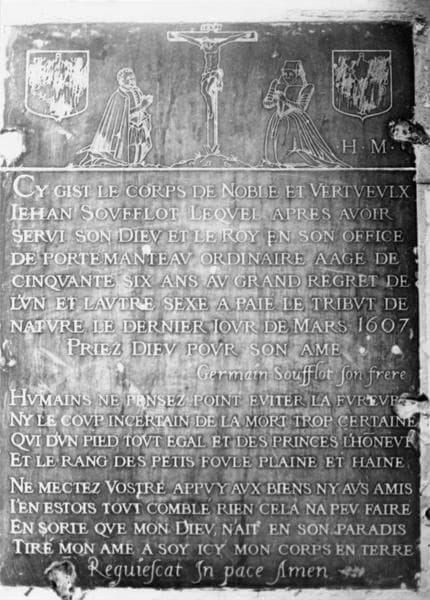 H · M ·
CY GIST LE CORPS DE NOBLE ET VERTVEVLX
IEHAN SOVFFLOT LEQVEL APRES AVOIR
SERVI SON DIEV ET LE ROY EN SON OFFICE
DE PORTEMANTEAV ORDINAIRE AAGE DE
CINQVANTE SIX ANS AV GRAND REGRET DE
L'VN ET LAVTRE SEXE A PAIE LE TRIBVT DE
NATVRE LE DERNIER IOVR DE MARS 1607
PRIEZ DIEV POVR SON AME
Germain Soufflot son frere
HVMAINS NE PENSEZ POINT EVITER LA FVREVR
NY LE COVP INCERTAIN DE LA MORT TROP CERTAINE
QVI D'VN PIED TOVT EGAL ET DES PRINCES L'HONEVR
ET LE RANG DES PETIS FOVLE PLAINE ET HAINE
NE METTEZ VOSTRE APPVY AVX BIENS NY AVS AMIS
I'EN ESTOIS TOVT COMBLE RIEN CELA NA PEV FAIRE
EN SORTE QVE MON DIEV, N'AIT EN SON PARADIS
TIRÉ MON AME A SOY ICY MON CORPS EN TERRE
Requiescat In pace Amen